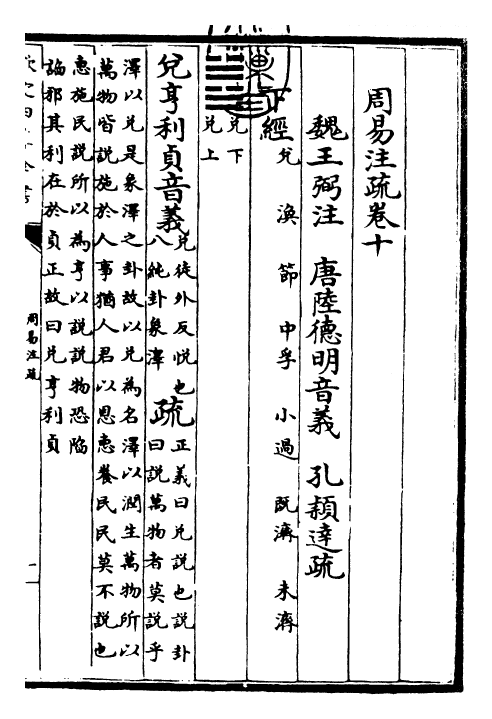 周易注疏卷十
魏王弼注　唐陸德明音義　孔穎達疏
下經　兌　渙　節　中孚　小過　既濟　未濟
䷹
兌下
兌上
兌亨利貞音義
兌徒外反悅也
八純卦象澤
疏
正義曰兌說也說卦
曰說萬物者莫說乎
澤以兌是象澤之卦故以兌為名澤以潤生萬物所以
萬物皆說施於人事猶人君以恩惠養民民莫不說也
惠施民說所以為亨以說說物恐陷
諂邪其利在於貞正故曰兌亨利貞
周易注疏
一